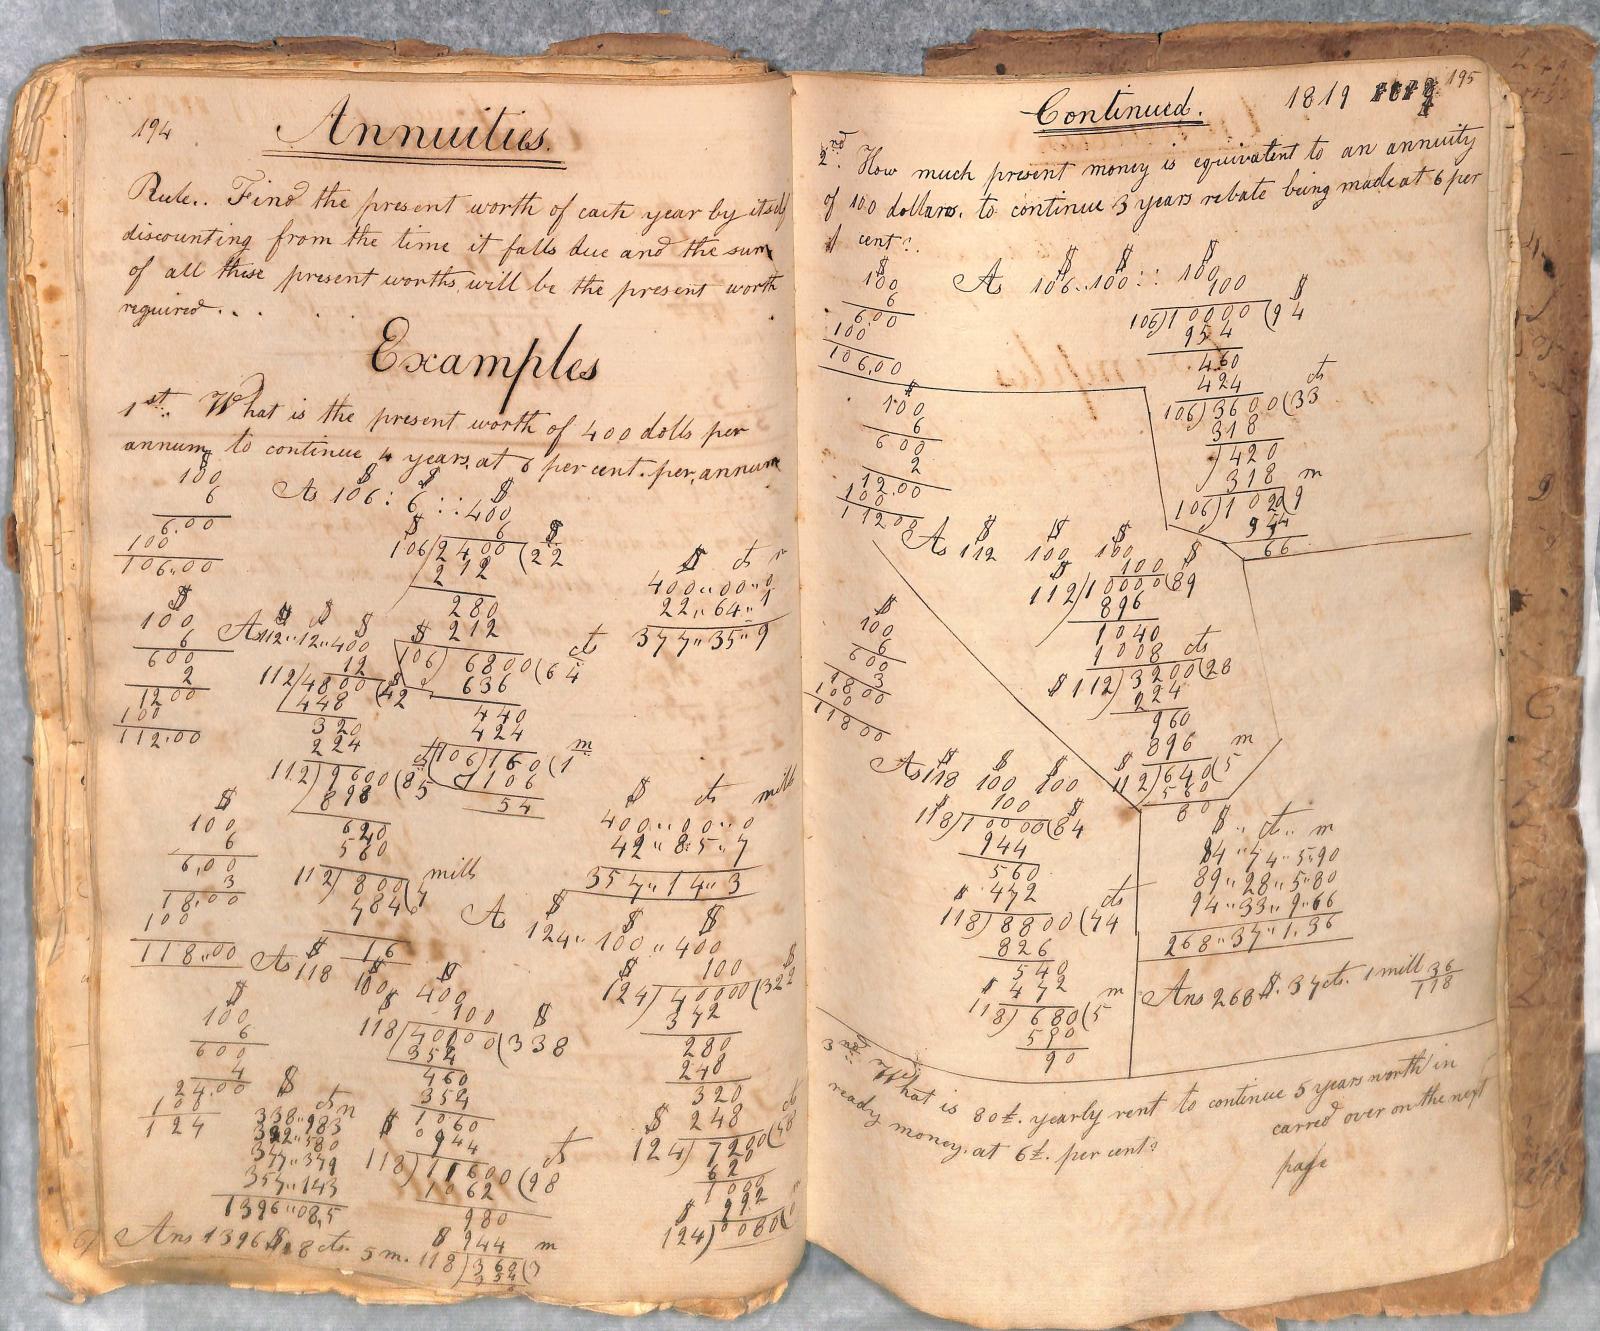 194
Annuities.
Rule.. Find the present worth of each year by itself
discounting from the time it falls due and the sum
of all these present worths, will be the present worth
required...
Examples
1st. What is the present worth of 400 dolls per
annum, to continue 4 years, at 6 per cent. per, annum
$
100
6
6.00
100
106.00
$ $ $
As 106 : 6 :: 400
6
$ $
106)2400(22
212
280
212
$ cts
106)6800(64
636
440
424
106)160(1 m
106
54
$ cts m
400,,00,,0
22,,64,,1
377,,35,,9
$
100
6
600
2
1200
100
112.00
$ $ $
As 112,,12,,400
12
112)4800(42
448
320
224
112)9600(85
898
620
560
mill
112)800(7
784
16
$ cts mill
400,,00,,0
42,,8,5,,7
357,,14,,3
$
100
6
6,00
3
18.00
100
118,,00
$ $ $
As 118 100 400
100
$ $
118)40000(338
354
460
354
1060
944
$ cts
118)11600(98
1062
980
944
$ m
118)360(3
354
$ $ $
As 124,,100,,400
100
$ $
124)40000(322
372
280
248
320
248
$
124)7200(58
620
1000
992
$
124)080(
$
100
6
600
4
24.00
100
124
$ cts m
338,,983
322,,580
377,,379
357,,143
1396,,08,5
Ans 1396 $ 8 cts. 5 m.
195
Continued. 1819
2nd. How much present money is equivalent to an annuity
of 100 dollars, to continue 3 years rebate being made at 6 per
cent?
$
100
6
6.00
100
106,00
$ $ $
As 106..100 :: 100
100
$
106)10000(94
954
460
424
cts
106)3600(33
318
420
318
m
106)1020(9
954
66
$
100
6
600
2
12.00
100
11200
$ $ $
As 112 100 100
100
$ $
112)10000(89
896
1040
1008
cts
$ 112)3200(28
224
960
896
$ m
112)640(5
560
80
$
100
6
600
3
1800
100
11800
$ $ $
As 118 100 100
100
$ $
118)10000(84
944
560
$ 472
cts
118)8800(74
826
540
$ 472
m
118)680(5
590
90
$,, cts,, m
84,,74,,5,,90
89,,28,,5,,80
94,,33,,9,,66
268,,37,,1,36
Ans 268 $. 37 cts. 1 mill 36/118
3rd. What is 80£. yearly rent to continue 5 years worth in
ready money, at 6£. per cent?
carred over on the next
page